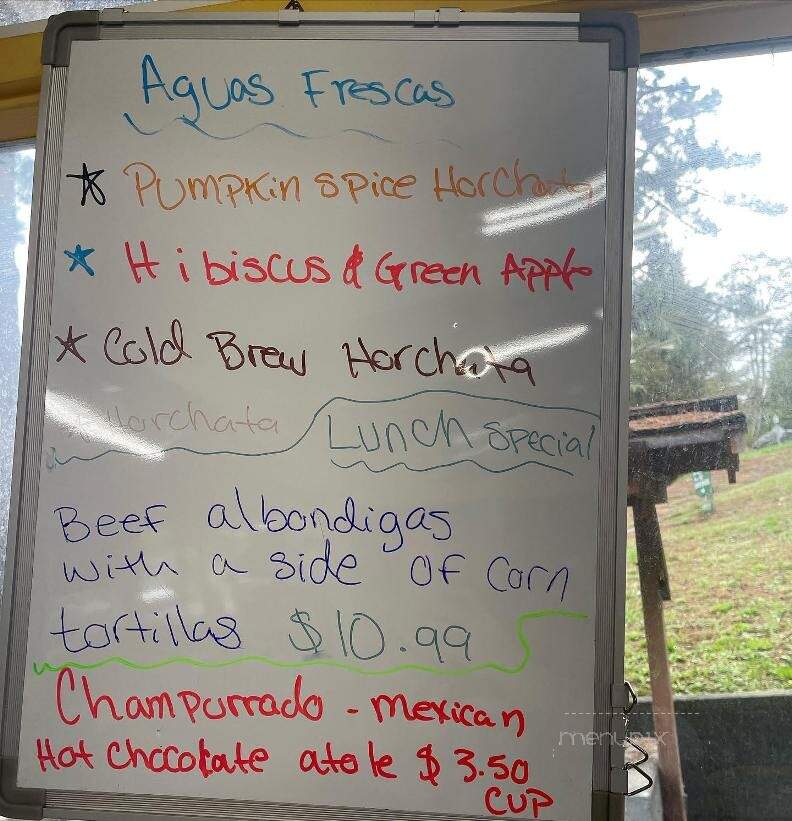 Aguas Frescas
Pumpkin Spice Horchata
Hibiscus & Green Apple
Cold Brew Horchata
Horchata
Lunch Special
Beef albondigas
with a side of corn
tortillas $10.99
Champurrado - mexican
Hot Chocolate atole $3.50
CUP
menupix